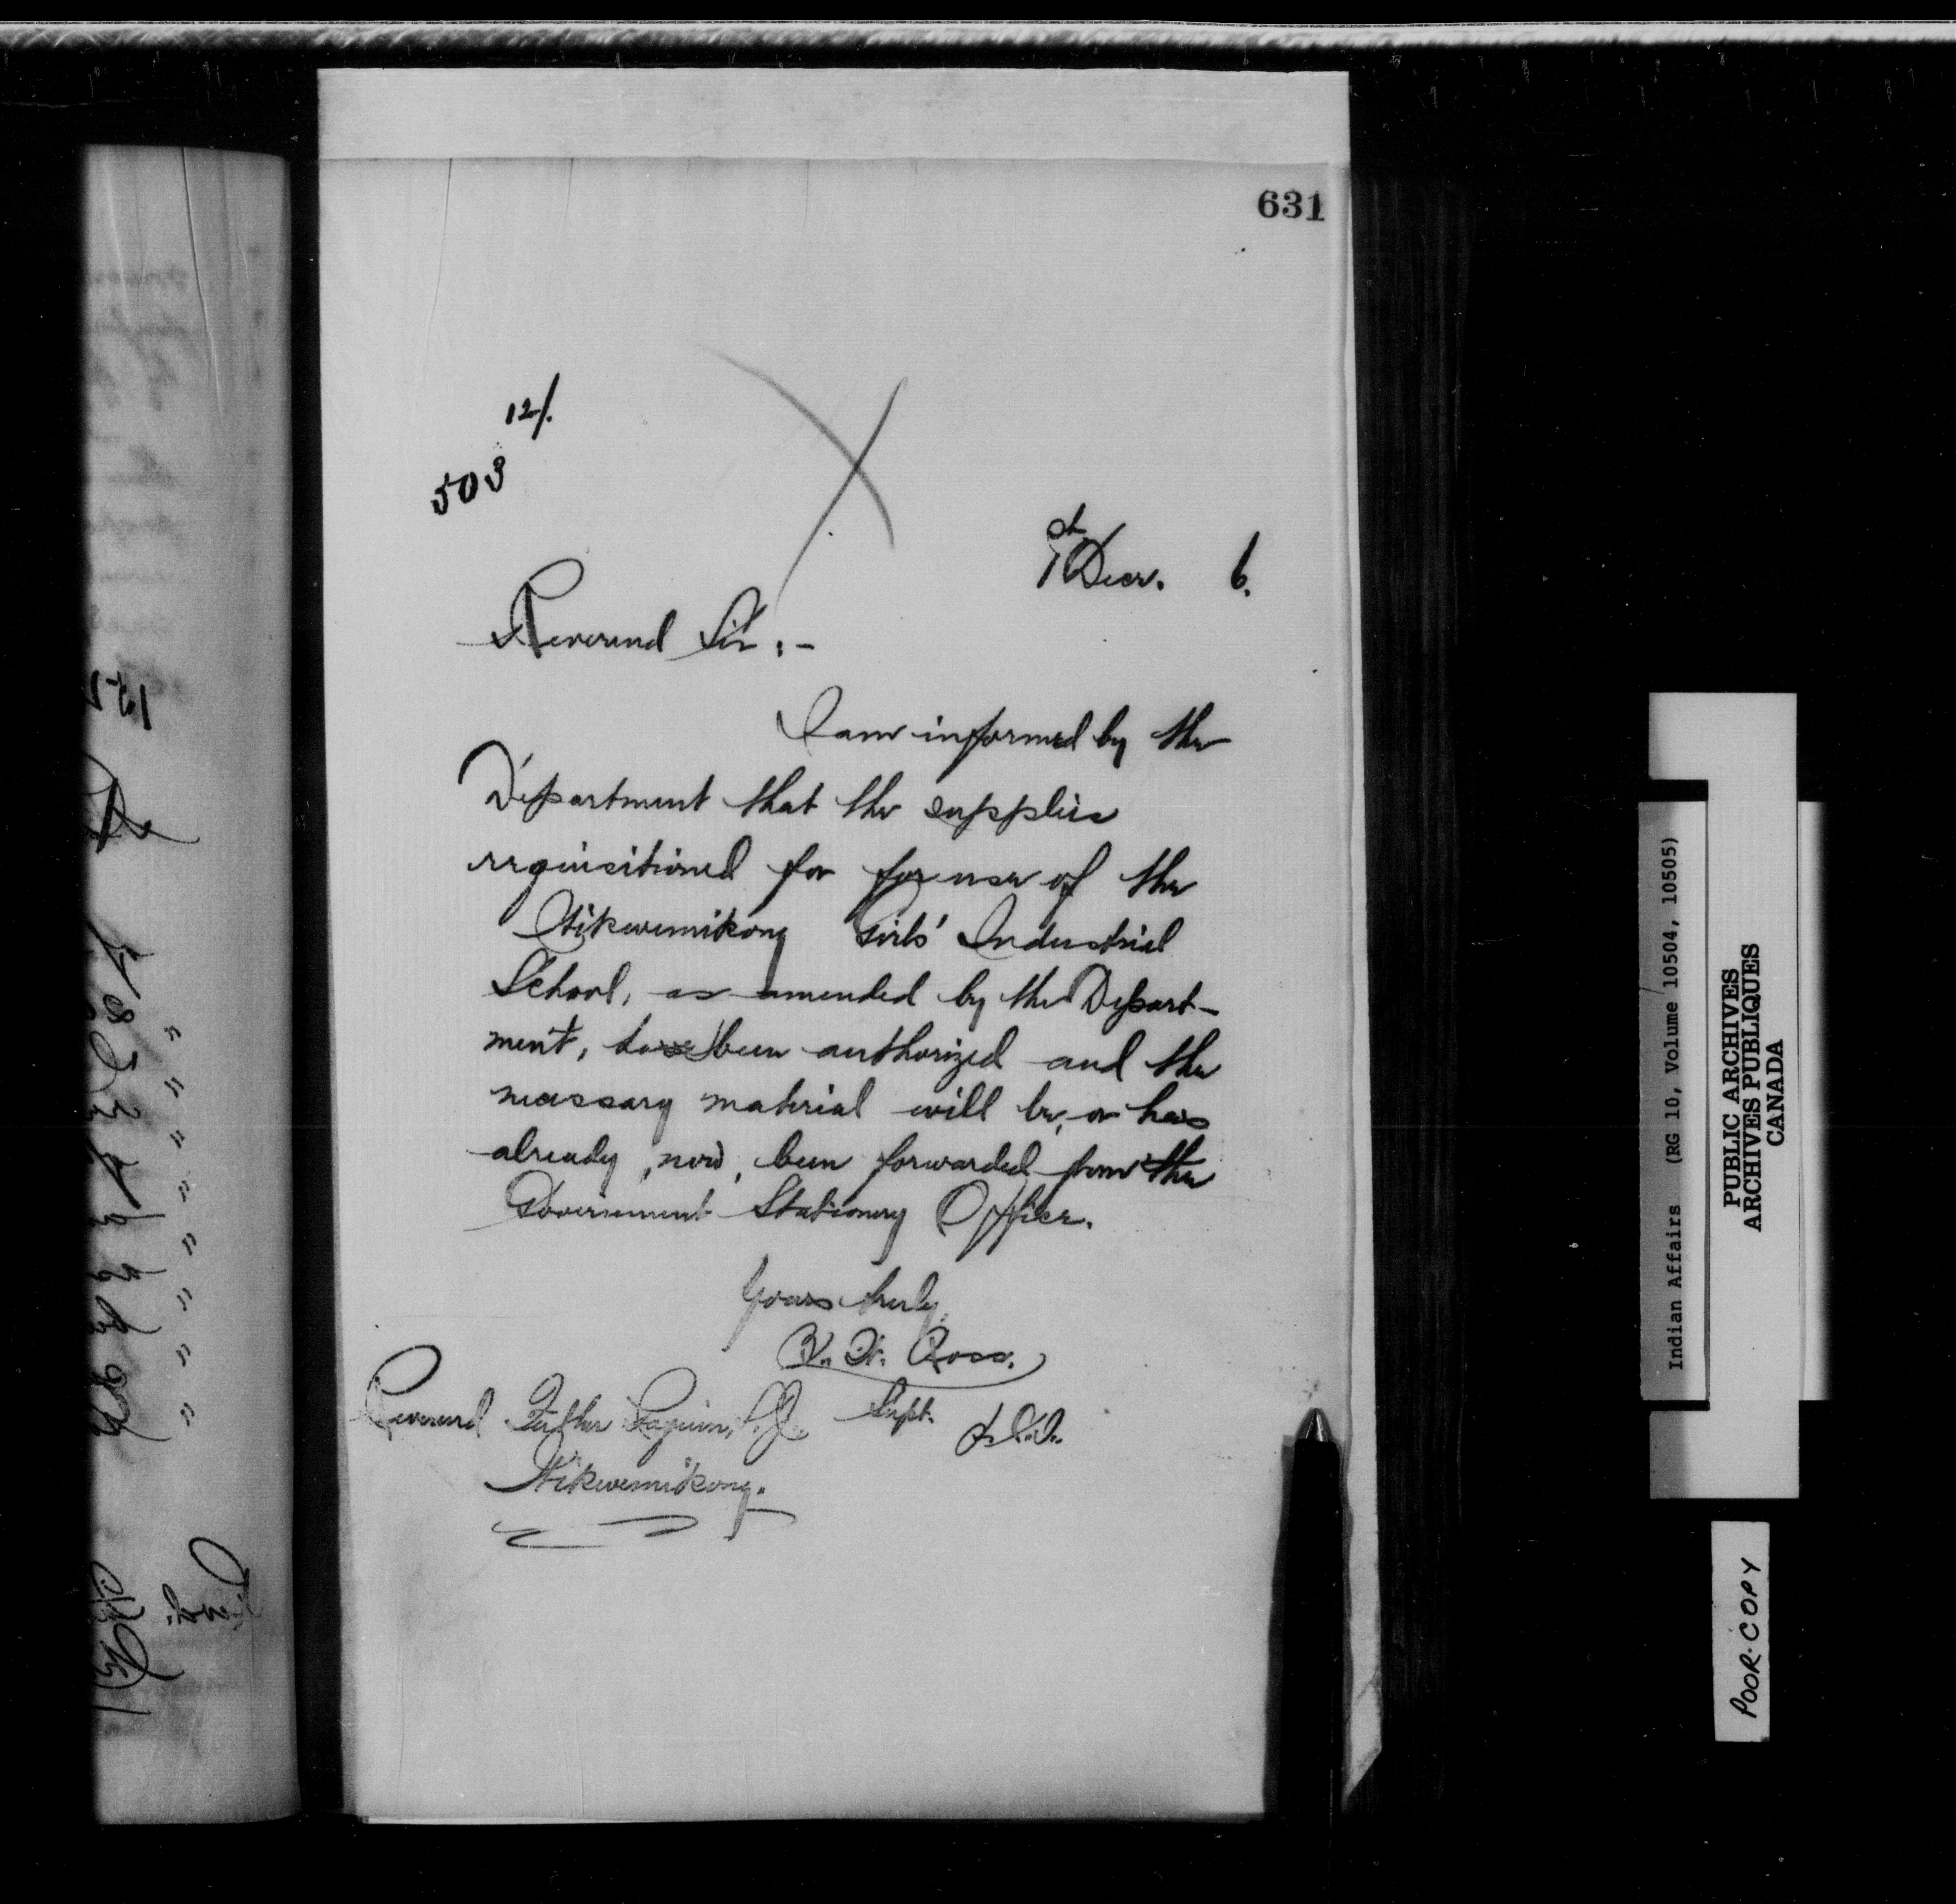 631
12/.
503
1st Decr. 6.
Reverend Sir:-
I am informed by the
Department that the supplies
requisitioned for for use of the
Wikwemikong Girls' Industrial
School, as amended by the Depart-
ment, have been authorized and the
necessary material will be, or has
already, now, been forwarded from the
Government Stationery Office.
Yours truly,
Ross.
Supt.
Reverend Father
Wikwemikong.
Indian Affairs (RG 10, Volume 10504, 10505)
PUBLIC ARCHIVES
ARCHIVES PUBLIQUES
CANADA
POOR COPY